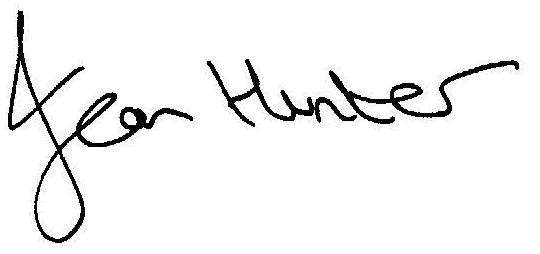 Jean Hunter